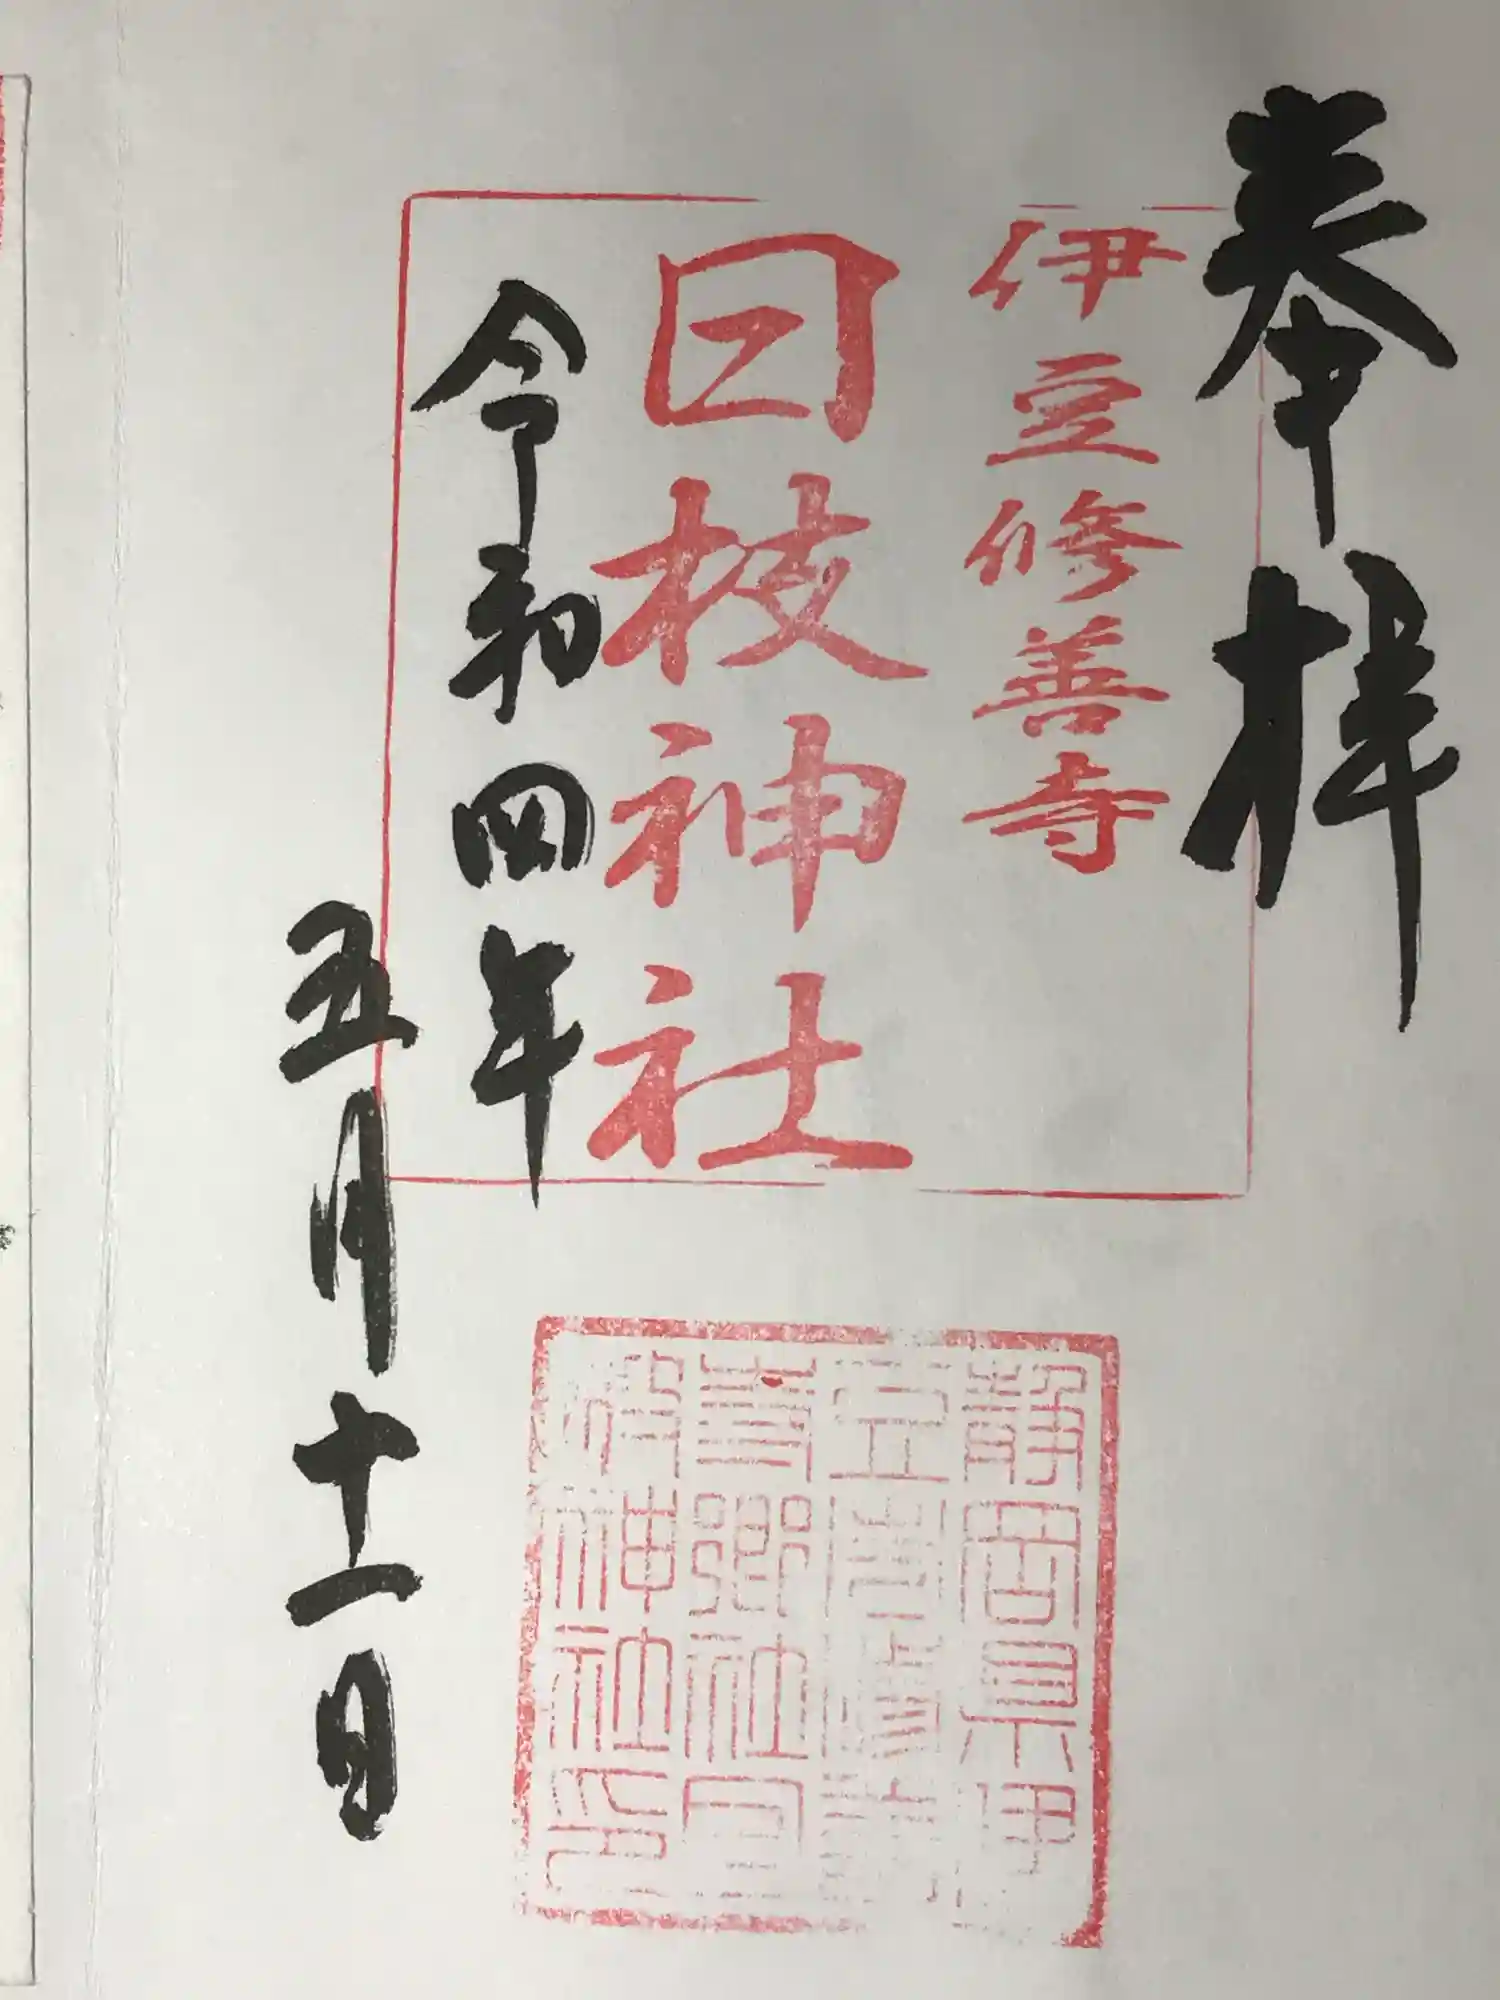 奉拝
伊豆修善寺
日枝神社
令和四年
五月十一日
静岡県伊
豆
郷社日
枝神社印